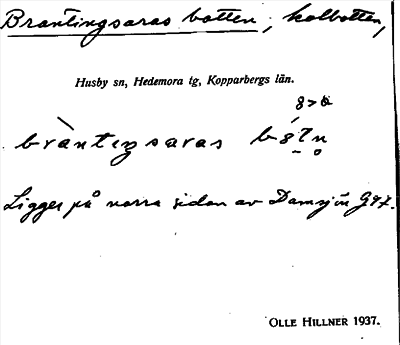 Brantingsaras botten, kolbotten,
Husby sn, Hedemora tg, Kopparbergs län.
8>a
bràntιŋsaras bót̠n̥
Ligger på norra sidan av Damsjön G97.
OLLE HILLNER 1937.